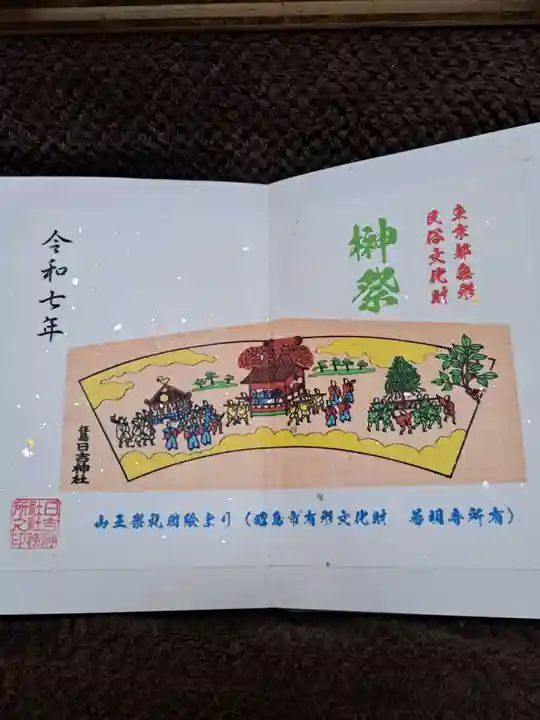 東京都無形
民俗文化財
榊祭
令和七年
拝島日吉神社
山王祭礼図絵より(昭島市有形文化財 普明寺所有)
日吉神
社社務
所之印